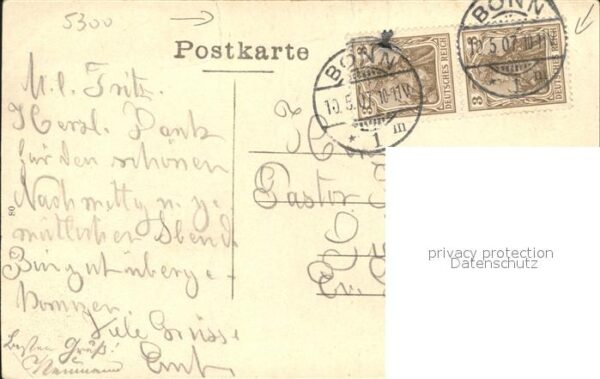 5300
Postkarte
M. l. Fritz.
Herzl. Dank
für den schönen
Nachmittg u. ge-
mütlichen Abend.
Bin gut überge-
kommen.
Viele Grüsse
Ernst
Besten Gruß!
Neumann
80
BONN
10.5.07. 10-11V.
* 1 m
BONN
10.5.07. 10-11V.
* 1 m
DEUTSCHES REICH
3
DEUTSCHES REICH
3
Pastor
Ev.
privacy protection
Datenschutz